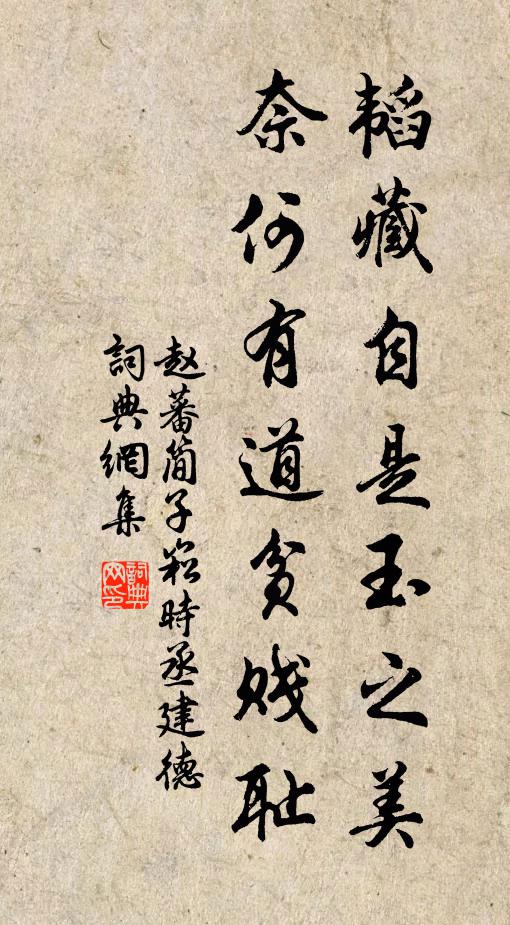 韬藏自是玉之美
奈何有道贫贱耻
赵蕃简子崧时丞建德
詞典網集
詞典网印